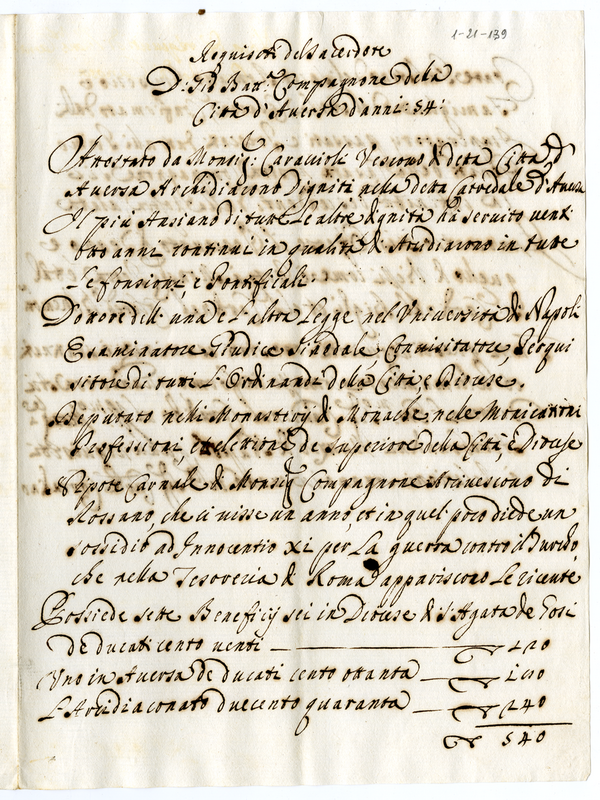 1-21-139
Requisiti del Sacerdote
D: Gio Batt.ª Compagnone della
Città d'Aversa d'anni: 54:
Attestato da Monsig.r Caraccioli Vescovo di detta Città d'
Aversa Archidiacono Dignità nella detta Catredale d'Aversa
Il più Ansiano di tutte le altre dignità ha servito venti
otto anni continui in qualità di Arcidiacono in tutte
Le fonsioni, e Pontificali.
Dottore dell'una e l'altra Legge nel Università di Napoli
Esaminatore Giudice Sinodale, Convisitatore, Perqui
sitore di tutti L'Ordinandi della Città e Diocese.
Deputato nelli Monasterij di Monache nele Monicationi
Professioni, et elettione de Superiore della Città, e Diocese
Nipote Carnale di Monsig.r Compagnone Arcivescovo di
Rossano, che ci visse un anno et in quel poco diede un
sossidio ad Innocentio XI per La guerra contro il Turcho,
che nella Tesoreria di Roma appariscono Le ricevute
Possiede sette Beneficij sei in Diocese di S. Agata de Goti
de ducati cento venti — 120
Uno in Aversa de ducati cento ottanta — 180
L'Arcidiaconato duecento quaranta — 240
540